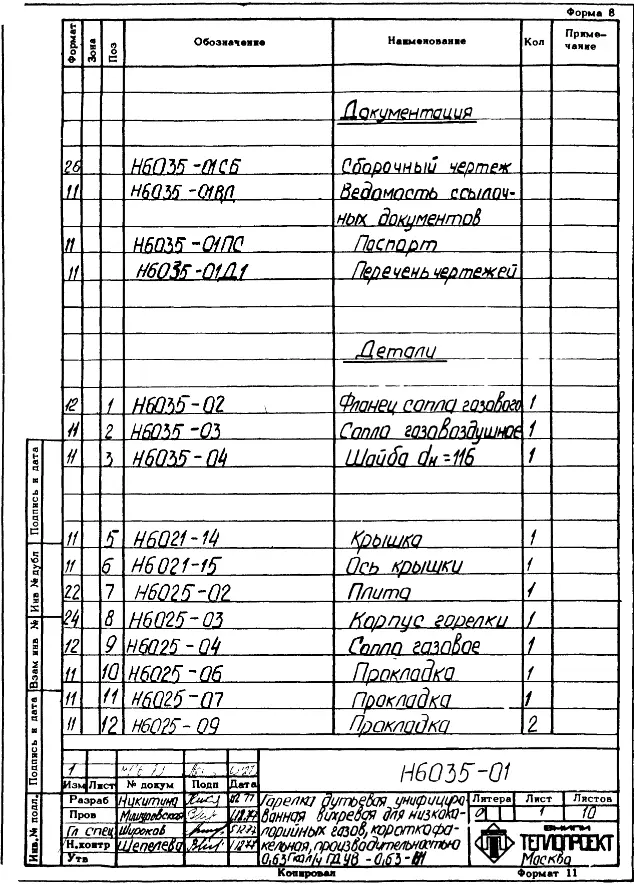 Форма 8
Формат Зона Поз Обозначение Наименование Кол Приме-
чание
Документация
26 Н6035-01СБ Сборочный чертеж
11 Н6035-01ВД Ведомость ссылоч-
ных документов
11 Н6035-01ПС Паспорт
11 Н6035-01Д1 Перечень чертежей
Детали
12 1 Н6035-02 Фланец сопла газового 1
11 2 Н6035-03 Сопло газовоздушное 1
11 3 Н6035-04 Шайба dн=116 1
11 5 Н6021-14 Крышка 1
11 6 Н6021-15 Ось крышки 1
22 7 Н6025-02 Плита 1
24 8 Н6025-03 Корпус горелки 1
12 9 Н6025-04 Сопло газовое 1
11 10 Н6025-06 Прокладка 1
11 11 Н6025-07 Прокладка 1
11 12 Н6025-09 Прокладка 2
Подпись и дата
Инв № дубл
Взам инв №
Подпись и дата
Инв.№ подл.
1
Изм Лист № докум Подп Дата
Н6035-01
Разраб Никитина
Пров
Гл спец Широков
Н.контр Шепелева
Утв
Горелка дутьевая унифициро-
ванная вихревая для низкока-
лорийных газов, короткофа-
кельная, производительностью
0,63 Гкал/ч ГДУВ-0,63-
Литера Лист Листов
1 10
ВНИПИ
ТЕПЛОПРОЕКТ
Москва
Копировал Формат 11